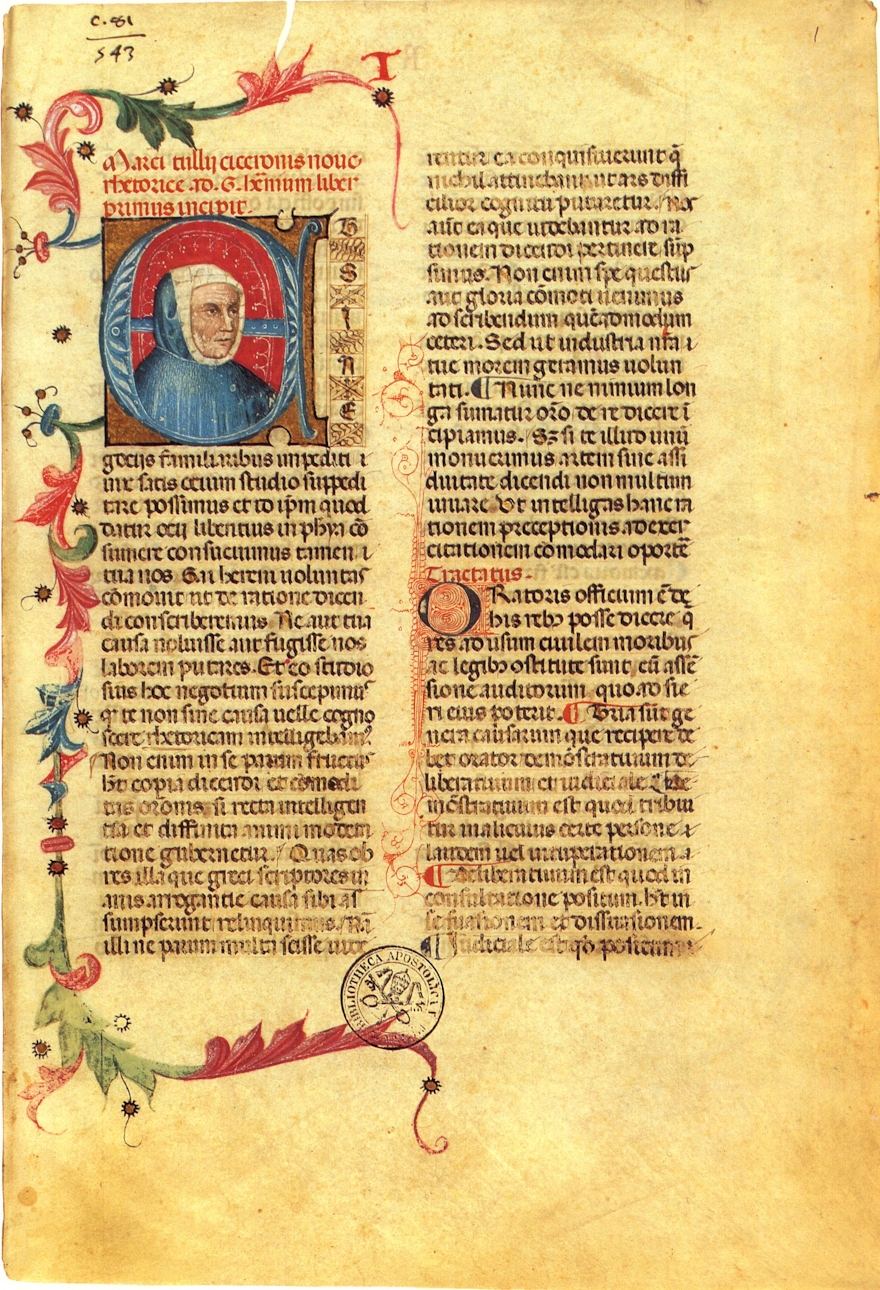 C. 81
543
1
T
Marci tullij ciceronis noue
rhetorice ad. G. hēnium liber
primus incipit.
E
T
S
I
N
E
gocijs familiaribus impediti i
uix satis ocium studio suppedi
tare possumus et id ip̄m quod
datur ocij libentius in phya cō
sumere consueuimus tamen i
tua nos. Gai herem uoluntas
cōmouit ut de ratione dicen
di conscriberemus. Ne aut tua
causa noluisse aut fugisse nos
laborem putares. Et eo studio
suis hoc negotium suscepimus
q̄ te non sine causa uelle cogno
scere rhetoricam intelligebam
Non enim in se parum fructus
hꝫ copia dicendi et comodi
tas orōnis. si recta intelligen
tia et diffinita animi modera
tione gubernetur. Quas ob
res illa que greci scriptores in
anis arrogantie causa sibi as
sumpserunt relinquimus. Nā
illi ne parum multa scisse uide
rentur ea conquisiuerunt q̄
nichil attinebant ut ars diffi
cilior cognitu putaretur. Nos
aūt ea que uidebantur ad ra
tionem dicendi pertinere sūp
simus. Non enim spe questus
aut gloria cōmoti uenimus
ad scribendum quēadmodum
ceteri. Sed ut industria nr̄a i
tue morem geramus uolun
tati. ¶ Nunc ne nimium lon
ga sumatur orō de re dicere ī
cipiamus. Sꝫ si te illud unū
monuerimus artem sine assi
duitate dicendi non multum
iuuare. Vt intelligas hanc ra
tionem preceptionis ad exer
citationem cōmodari oportē
Tractatus.
ORatoris officium ē de
his rebꝫ posse dicere q̄
res ad usum ciuilem moribus
ac legibꝫ ostitute sunt, cū assē
sione auditorum, quoad fie
ri eius poterit. ¶ Tria sūt ge
nera causarum que recipere de
bet orator demōstratiuum de
liberatiuum et iudiciale. De
mōstratiuum est quod tribui
tur in alicuius certe persone
laudem uel uituperationem
¶ Deliberatiuum est quod in
consultatione positum. hꝫ in
se suasionem et dissuasionem.
¶ Judiciale est qḋ positum
BIBLIOTHECA APOSTOLICA